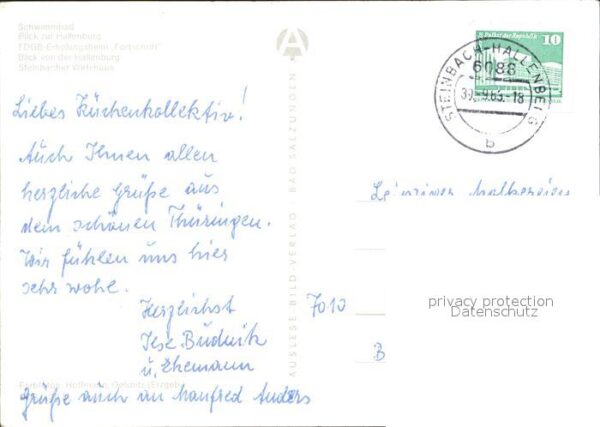 Schwimmbad
Blick zur Hallenburg
FDGB-Erholungsheim „Fortschritt“
Blick von der Hallenburg
Steinbacher Wirtshaus
A
AUSLESE-BILD-VERLAG BAD SALZUNGEN
Palast der Republik 10
STEINBACH-HALLENBERG
6088
-18
b
Liebes Küchenkollektiv!
Auch Ihnen allen
herzliche Grüße aus
dem schönen Thüringen.
Wir fühlen uns hier
sehr wohl.
Herzlichst
Ilse Budnik
u. Ehemann
Grüße auch an Manfred Anders
Leipziger
7010
B
privacy protection
Datenschutz